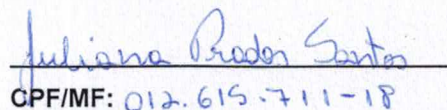 Juliana Prado Santos
CPF/MF: 012.615.711-18